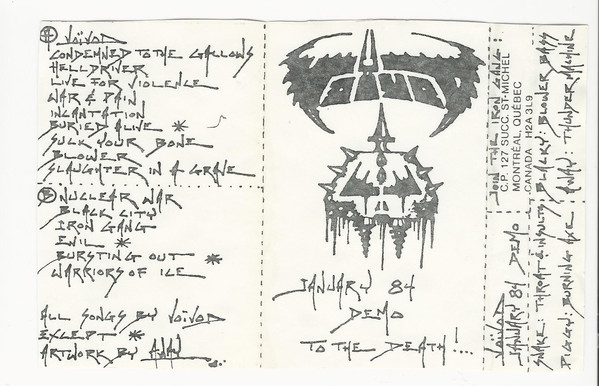 Ⓐ VOÏVOD
CONDEMNED TO THE GALLOWS
HELLDRIVER
LIVE FOR VIOLENCE
WAR & PAIN
INCANTATION
BURIED ALIVE *
SUCK YOUR BONE
BLOWER
SLAUGHTER IN A GRAVE
Ⓑ NUCLEAR WAR
BLACK CITY
IRON GANG
EVIL *
BURSTING OUT *
WARRIORS OF ICE
ALL SONGS BY VOÏVOD
EXCEPT *
ARTWORK BY AWAY
VOIVOD
JANUARY 84
DEMO
TO THE DEATH!...
JOIN THE IRON GANG:
C.P. 127 SUCC. ST-MICHEL
MONTRÉAL, QUÉBEC
CANADA H2A 3L9
VOÏVOD
JANUARY 84 DEMO
SNAKE: THROAT & INSULTS BLACKY: BLOWER BASS
PIGGY: BURNING AXE AWAY: THUNDER MACHINE